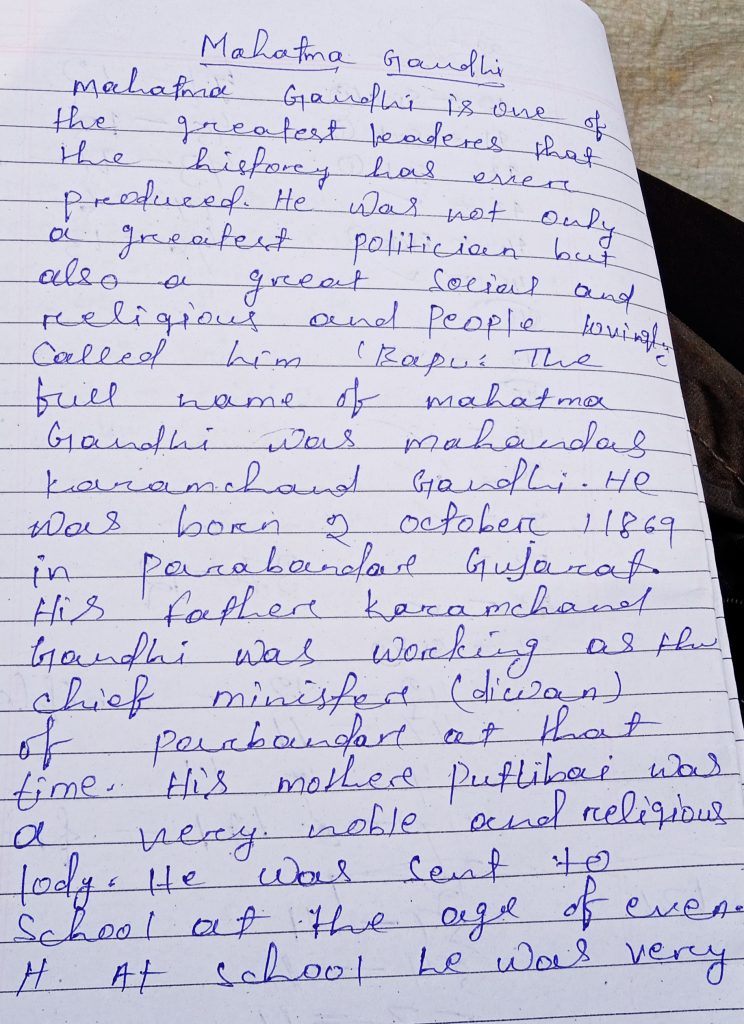 Mahatma Gandhi
Mahatma Gandhi is one of
the greatest leaders that
the history has ever
produced. He was not only
a greatest politician but
also a great social and
religious and people lovingly
Called him 'Bapu'. The
full name of mahatma
Gandhi was mahandas
karamchand Gandhi. He
was born 2 october, 1869
in Parabandar Gujarat.
His father karamchand
Gandhi was working as the
chief minister (diwan)
of parbandar at that
time. His mother Putlibai was
a very noble and religious
lody. He was sent to
School at the age of even.
H. At school he was very